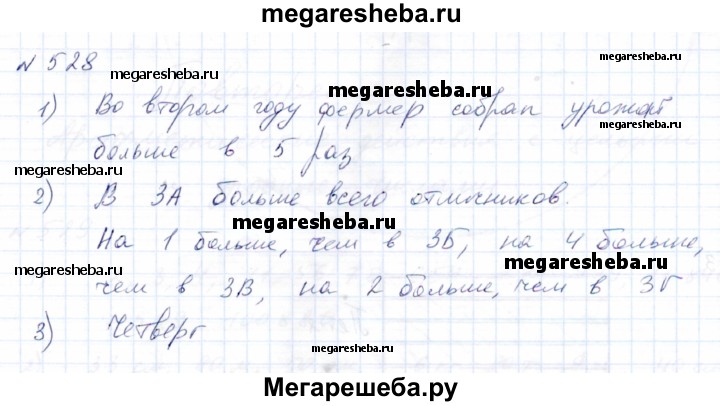 megaresheba.ru
№ 528
megaresheba.ru
megaresheba.ru
megaresheba.ru
1) Во втором году фермер собрал урожай
megaresheba.ru
больше в 5 раз
2) В 3А больше всего отличников.
megaresheba.ru
На 1 больше, чем в 3Б, на 4 больше,
megaresheba.ru
megaresheba.ru
чем в 3В, на 2 больше, чем в 3Г
3) Четверг
megaresheba.ru
megaresheba.ru
Мегарешеба.ру